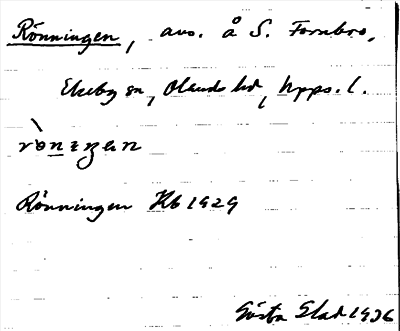 Rönningen, avs. å S. Fornbro,
Ekeby sn, Olands hd, Upps. l.
rònıŋən
Rönningen Kb 1929
Gösta Stad 1936